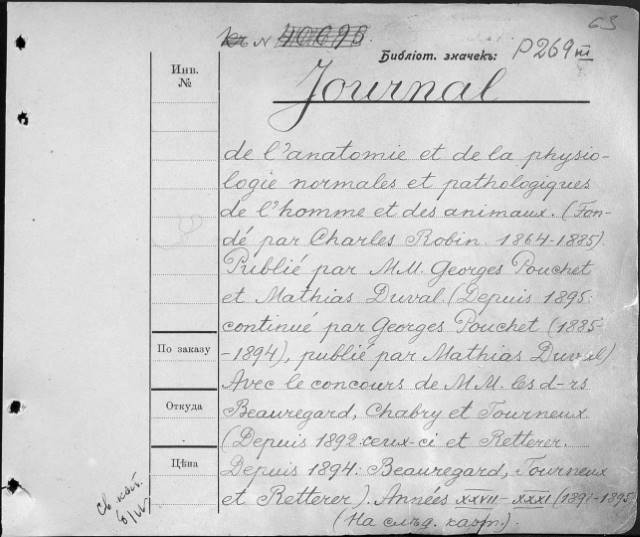 63
къ N 40696.
Библіот. значекъ: P269 III
Инв.
№
Journal
de l'anatomie et de la physio-
logie normales et pathologiques
de l'homme et des animaux. (Fon-
dé par Charles Robin. 1864-1885).
Publié par M.M. Georges Pouchet
et Mathias Duval. (Depuis 1895:
continué par Georges Pouchet (1885-
-1894), publié par Mathias Duval)
Avec le concours de M.M. les d-rs
Beauregard, Chabry et Tourneux
(Depuis 1892: ceux-ci et Retterer.
Depuis 1894: Beauregard, Tourneux
et Retterer). Années XXVII-XXXI (1891-1895)
(На слѣд. карт.).
По заказу
Откуда
Цѣна